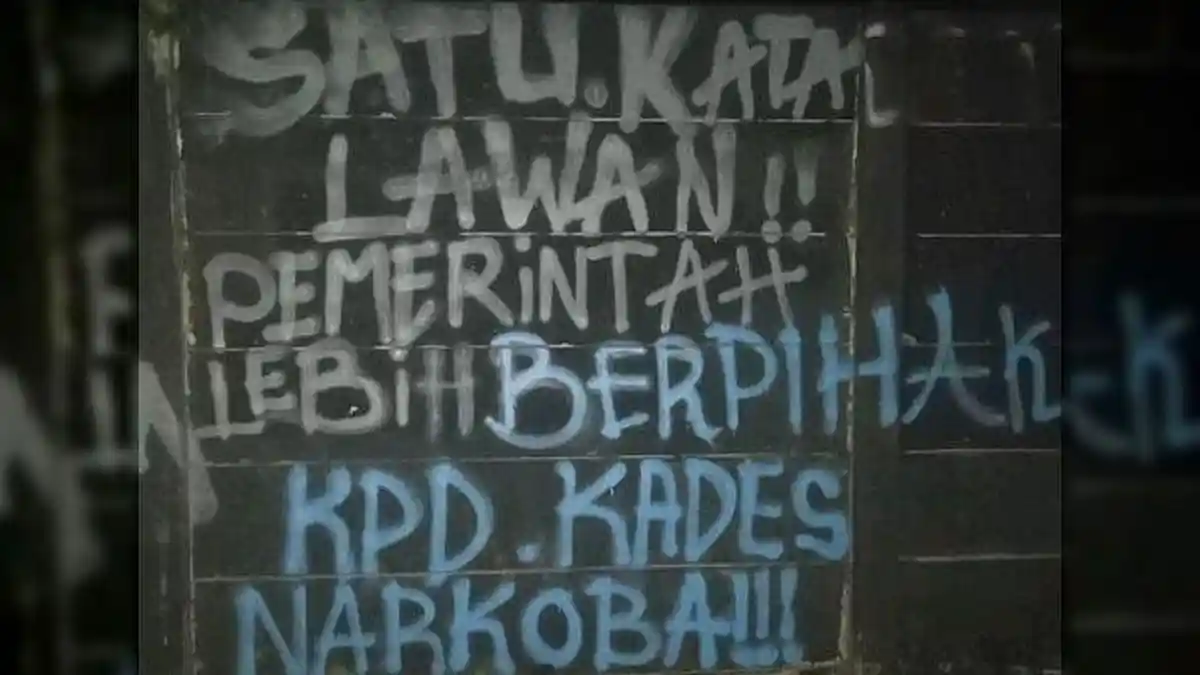 SATU.KATA
LAWAN!!
PEMERiNTAH
LEBiH BERPIHAK
KPD.KADES
NARKOBA!!!